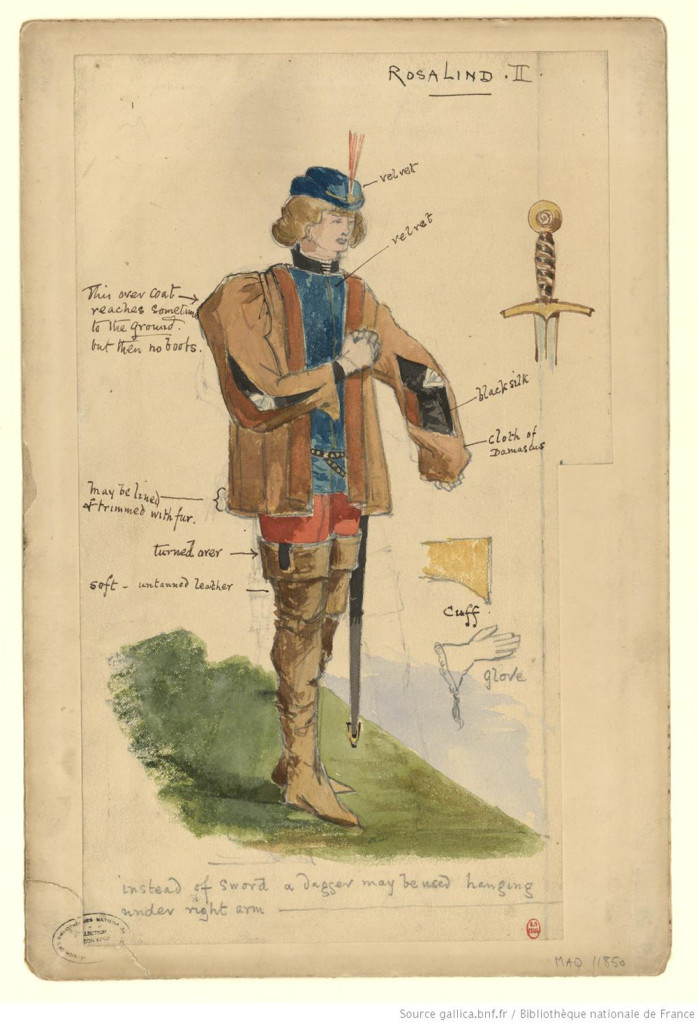 ROSALIND . II .
velvet
velvet
This over coat
reaches sometimes
to the ground.
but then no boots.
black silk
cloth of
Damascus
may be lined
& trimmed with fur.
turned over
soft - untanned leather
Cuff
glove
instead of sword a dagger may be used hanging
under right arm
MAQ 11850
Source gallica.bnf.fr / Bibliothèque nationale de France